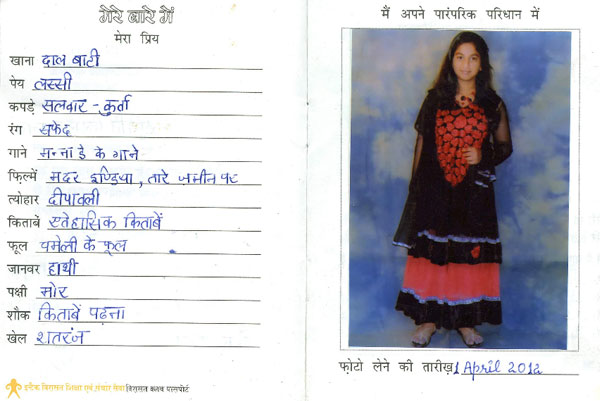 मेरे बारे में
मेरा प्रिय
खाना दाल बाटी
पेय लस्सी
कपड़े सलवार - कुर्ता
रंग सफेद
गाने मन्नाडे के गाने
फ़िल्में मदर इण्डिया, तारे जमीन पर
त्योहार दीपावली
किताबें ऐतेहासिक किताबें
फूल चमेली के फूल
जानवर हाथी
पक्षी मोर
शौक किताबें पढ़ना
खेल शतरंज
इन्टैक विरासत शिक्षा एवं संचार सेवा विरासत क्लब पासपोर्ट
मैं अपने पारंपरिक परिधान में
फ़ोटो लेने की तारीख़ 1 April 2012